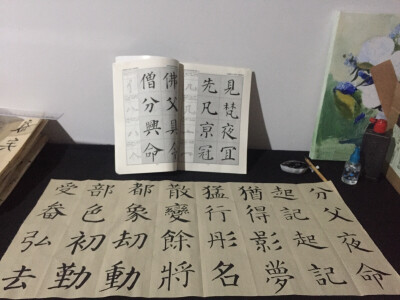 見梵夜冝
先凡亰冠
佛父具
僧分興命
分父夜命
起記起記
猶得影夢
猛行彤名
散變餘將
都象劫動
部色初勤
受眷弘去